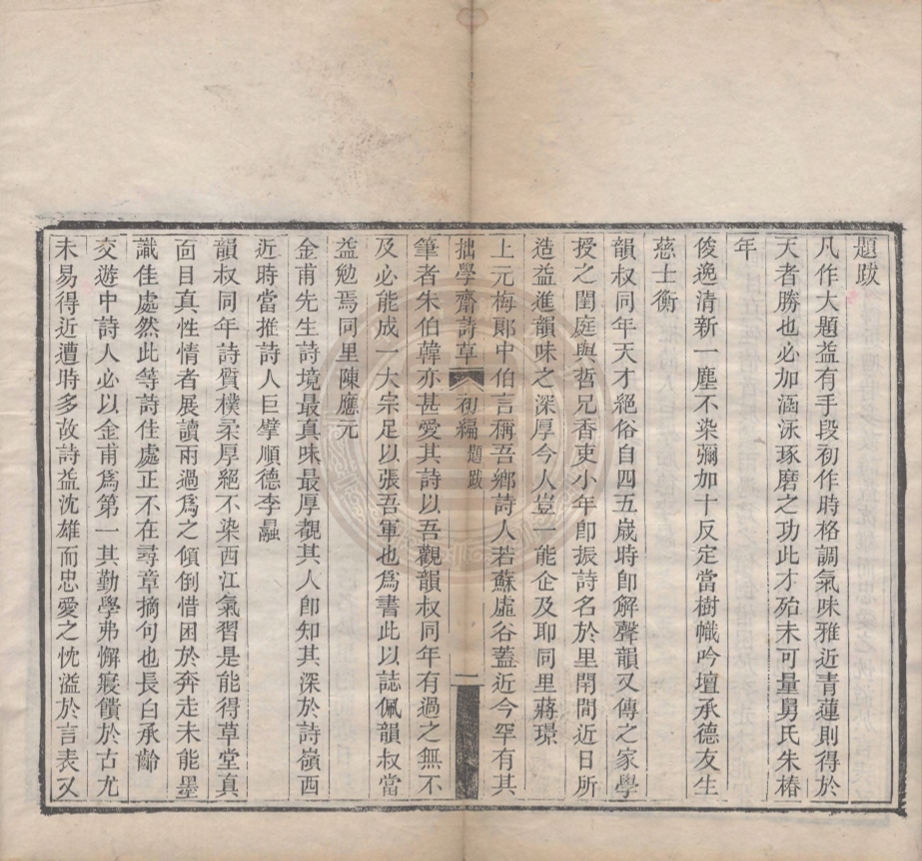 題跋
凡作大題益有手段初作時格調氣味雅近青蓮則得於
天者勝也必加涵泳琢磨之功此才殆未可量舅氏朱椿
年
俊逸清新一塵不染彌加十反定當樹幟吟壇承德友生
慈士衡
韻叔同年天才絕俗自四五歲時卽解聲韻又傳之家學
授之閨庭與哲兄香吏小年卽振詩名於里閈間近日所
造益進韻味之深厚今人豈一能企及耶同里蔣璟
上元梅郞中伯言稱吾鄉詩人若蘇虛谷蓋近今罕有其
拙學齋詩草 初編 題跋 一
筆者朱伯韓亦甚愛其詩以吾觀韻叔同年有過之無不
及必能成一大宗足以張吾軍也爲書此以誌佩韻叔當
益勉焉同里陳應元
金甫先生詩境最真味最厚觀其人卽知其深於詩嶺西
近時當推詩人巨擘順德李曧
韻叔同年詩質樸柔厚絕不染西江氣習是能得草堂真
面目真性情者展讀兩過爲之傾倒惜困於奔走未能墨
識佳處然此等詩佳處正不在尋章摘句也長白承齡
交遊中詩人必以金甫爲第一其勤學弗懈寢饋於古尤
未易得近遭時多故詩益沈雄而忠愛之忱溢於言表又